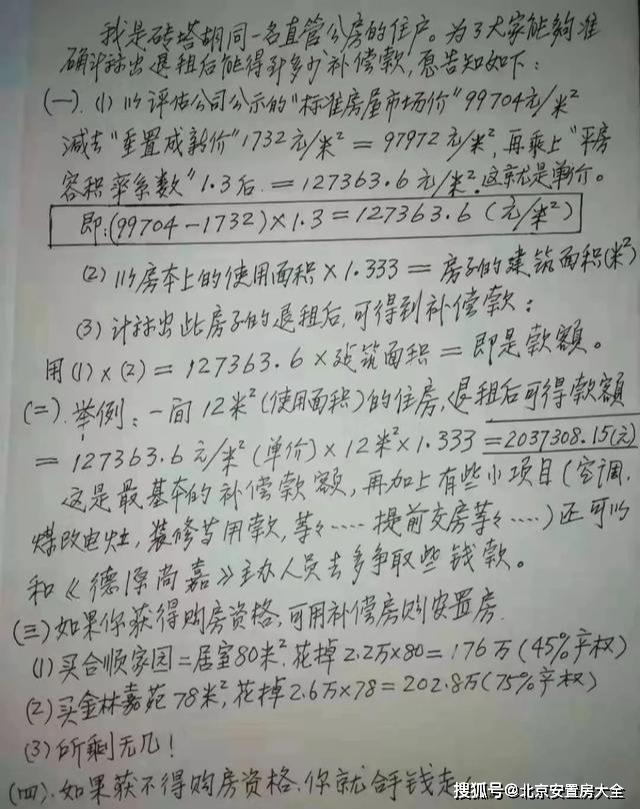 我是砖塔胡同一名直管公房的住户。为了大家能够准
确计标出退租后能得到多少补偿款，愿告知如下：
(一). (1) 以评估公司公示的“标准房屋市场价”99704元/米²
减去“重置成新价”1732元/米² = 97972元/米², 再乘上“平房
容积率系数”1.3后. = 127363.6元/米². 这就是单价。
即:(99704-1732)×1.3=127363.6 (元/米²)
(2) 以房本上的使用面积×1.333 = 房子的建筑面积(米²)
(3) 计标出此房子的退租后, 可得到补偿款：
用(1)×(2) = 127363.6×建筑面积 = 即是款额。
(二). 举例：一间12米²(使用面积)的住房, 退租后可得款额
= 127363.6元/米²(单价)×12米²×1.333 =2037308.15(元)
这是最基本的补偿款额, 再加上有些小项目(空调.
煤改电灶, 装修节用款, 等々……提前交房等々……)还可以
和《德源尚嘉》主办人员去多争取些钱款。
(三) 如果你获得购房资格, 可用补偿房购安置房.
(1) 买合顺家园=居室80米². 花掉2.2万×80=176万(45%产权)
(2) 买金林嘉苑78米², 花掉2.6万×78=202.8万(75%产权)
(3) 所剩无几！
(四). 如果获不得购房资格. 你就合手钱走
搜狐号@北京安置房大全